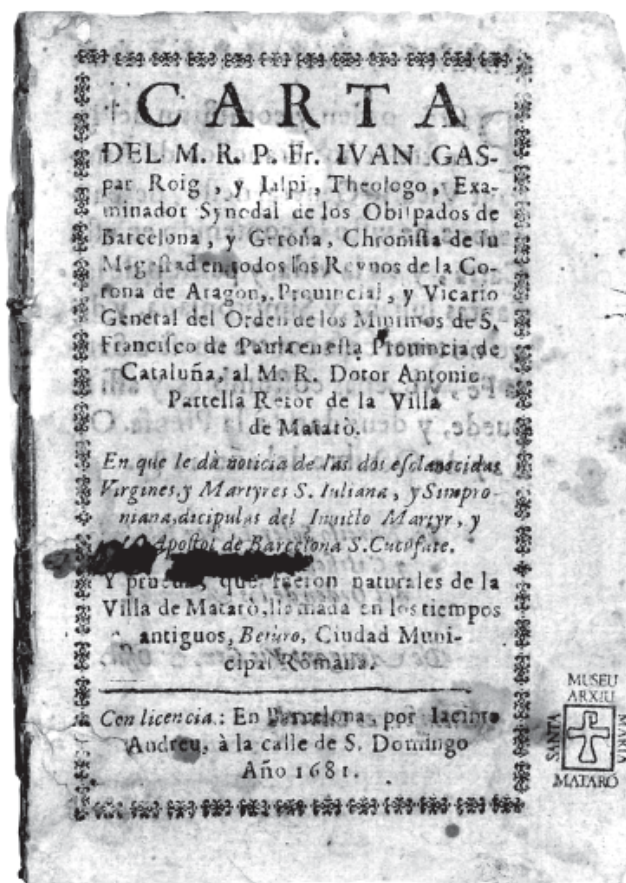 CARTA
DEL M. R. P. Fr. IVAN GAS-
par Roig, y Ialpi, Theologo, Exa-
minador Synodal de los Obiſpados de
Barcelona, y Gerona, Chroniſta de ſu
Mageſtad en todos los Reynos de la Co-
rona de Aragon, Prouincial, y Vicario
General del Orden de los Minimos de S.
Franciſco de Paula en eſta Prouincia de
Cataluña, al M. R. Dotor Antonio
Partella Retor de la Villa
de Mataró.
En que le dà noticia de las dos eſclarecidas
Virgines, y Martyres S. Iuliana, y Simpro-
niana, dicipulas del Inuicto Martyr, y
Apoſtol de Barcelona S. Cucufate.
Y prueua, que fueron naturales de la
Villa de Matarò, llamada en los tiempos
antiguos, Beturo, Ciudad Muni-
cipal Romana.
Con licencia: En Barcelona, por Iacinto
Andreu, à la calle de S. Domingo
Año 1681.
MUSEU
ARXIU
SANTA
MARIA
MATARÓ